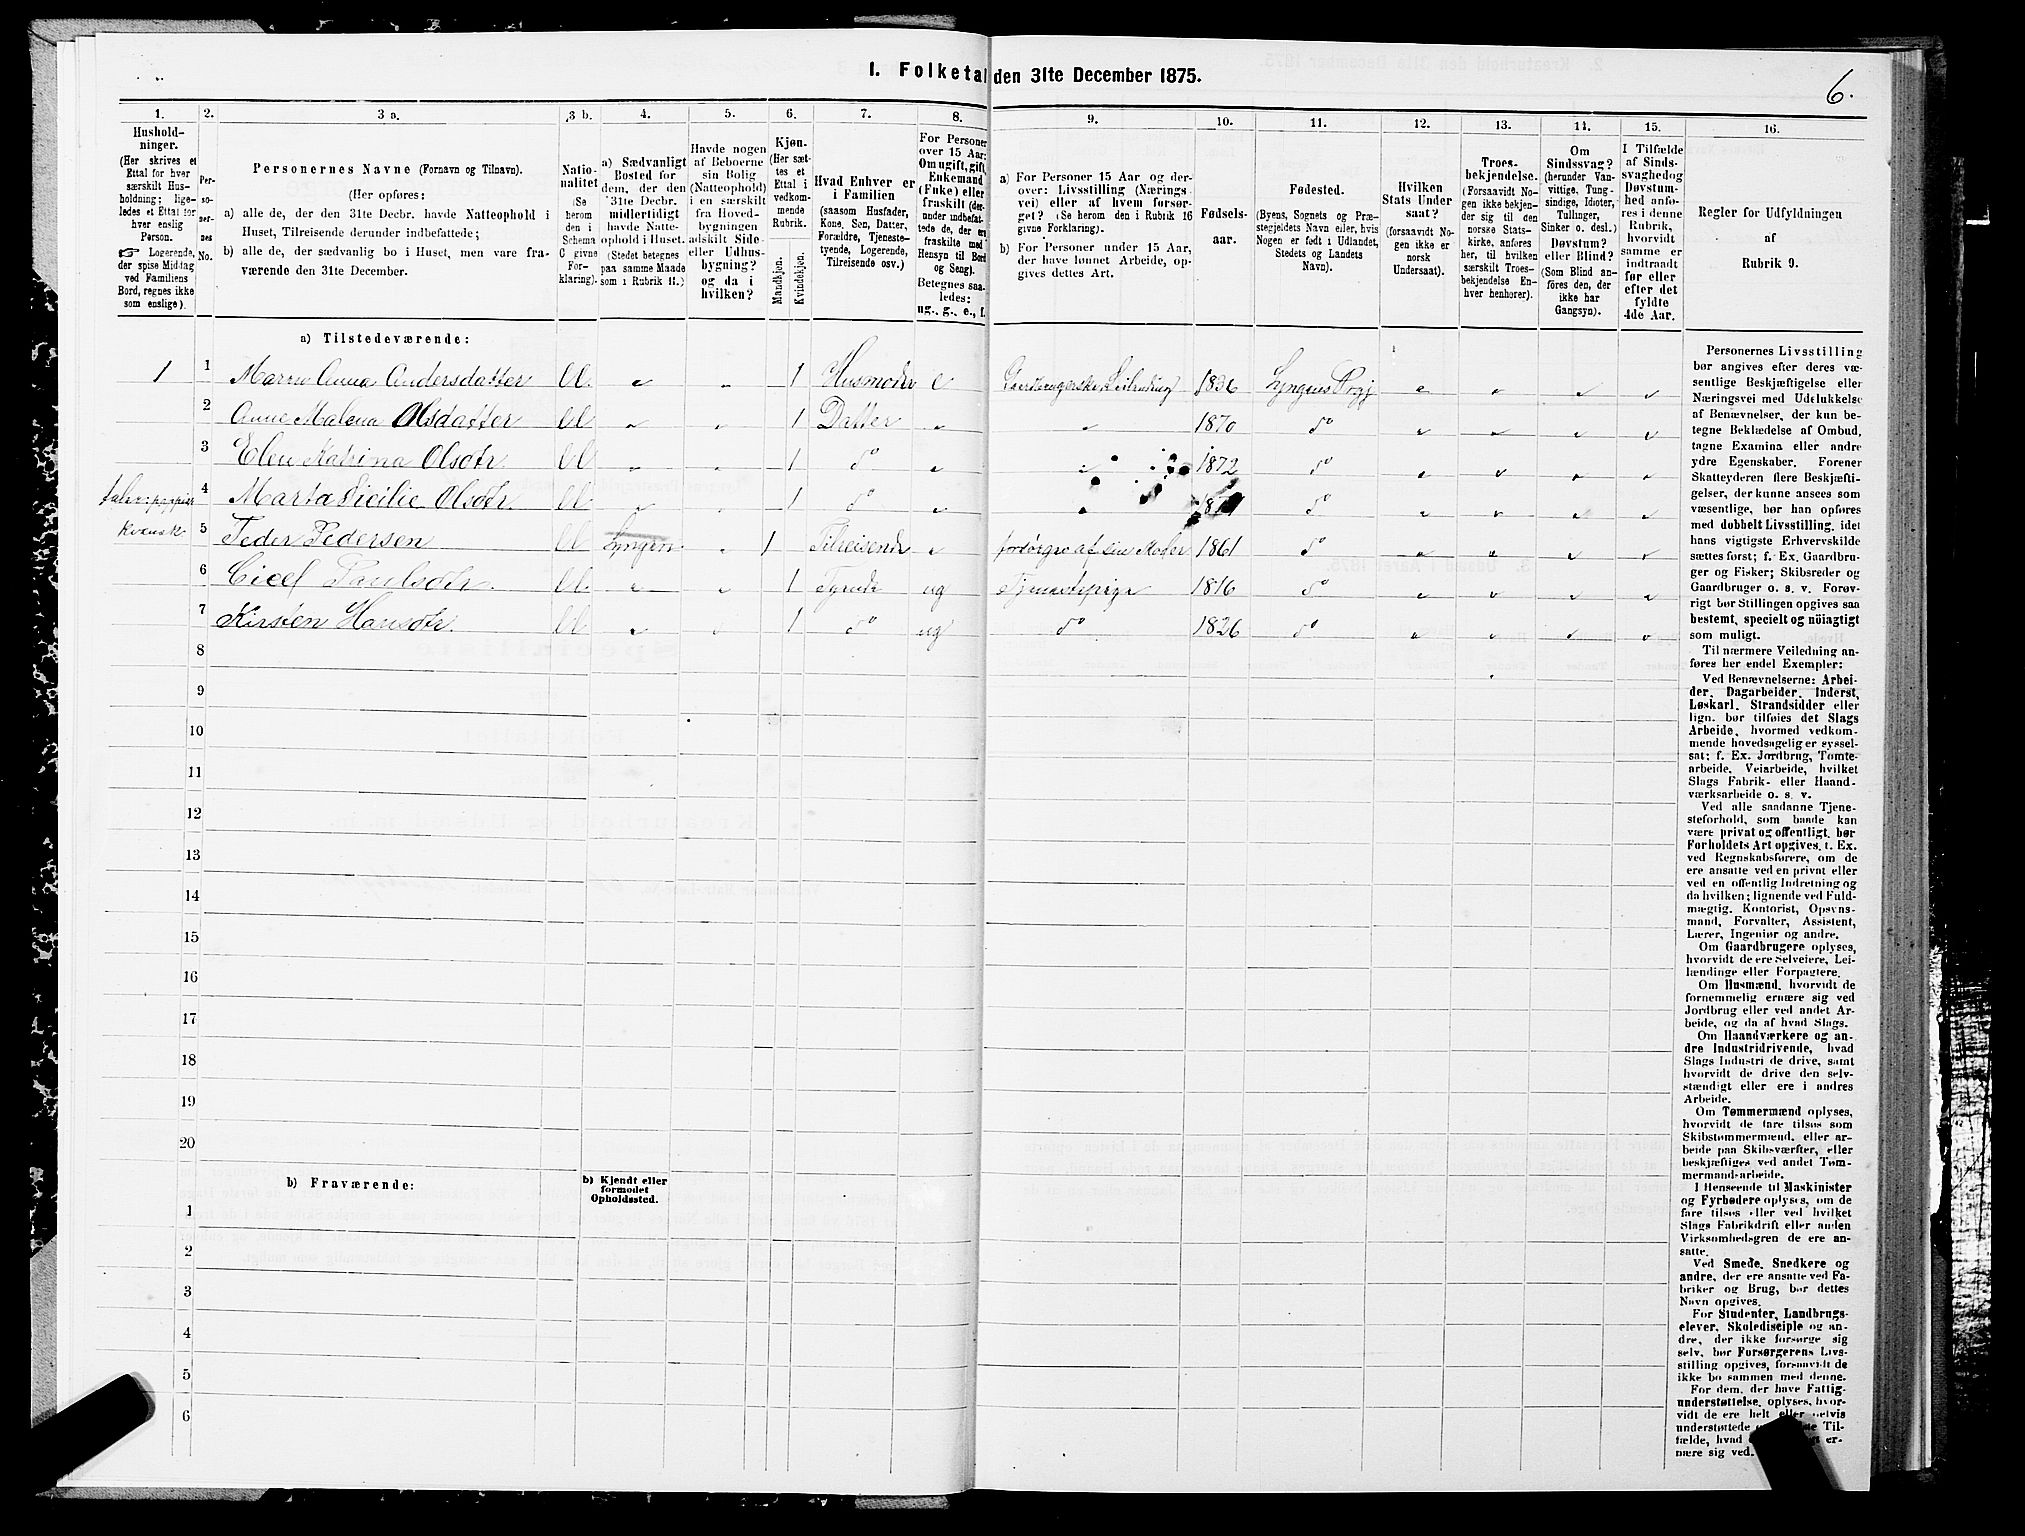 1. Folketal den 31te December 1875.
6.
1.
Hushold-
ninger.
(Her skrives et
Ettal for hver
særskilt Hus-
holdning; lige-
ledes et Ettal for
hver enslig
Person.
☞ Logerende,
der spise Middag
ved Familiens
Bord, regnes ikke
som enslige).
2.
Per-
so-
ner-
nes
No.
3 a.
Personernes Navne (Fornavn og Tilnavn).
(Her opføres:
a) alle de, der den 31te Decbr. havde Natteophold i
Huset, Tilreisende derunder indbefattede;
b) alle de, der sædvanlig bo i Huset, men vare fra-
værende den 31te December.
3 b.
Natio-
nalitet
(Se
herom
den i
Schema
C givne
For-
klaring).
4.
a) Sædvanligt
Bosted for
dem, der den
31te Decbr.
midlertidigt
havde Natte-
ophold i Huset.
(Stedet betegnes
paa samme Maade
som i Rubrik 11.)
5.
Havde nogen
af Beboerne
sin Bolig
(Natteophold)
i en særskilt
fra Hoved-
bygningen
adskilt Side-
eller Udhus-
bygning?
og da i
hvilken?
6.
Kjøn.
(Her sæt-
tes et
Ettal i
vedkom-
mende
Rubrik.
Mandkjøn.
Kvindekjøn.
7.
Hvad Enhver er
i Familien
(saasom Husfader,
Kone, Søn, Datter,
Forældre, Tjeneste-
tyende, Logerende,
Tilreisende osv.)
8.
For Personer
over 15 Aar:
Om ugift, gift,
Enkemand
(Enke) eller
fraskilt (der-
under indbefat-
tede de, der ere
fraskilte med
Hensyn til Bord
og Seng).
Betegnes saa-
ledes:
ug., g., e., f.
9.
a) For Personer 15 Aar og der-
over: Livsstilling (Nærings-
vei) eller af hvem forsør-
get? (Se herom den i Rubrik 16
givne Forklaring).
b) For Personer under 15 Aar,
der have lønnet Arbeide, op-
gives dettes Art.
10.
Fødsels-
aar.
11.
Fødested.
(Byens, Sognets og Præ-
stegjeldets Navn eller, hvis
Nogen er født i Udlandet,
Stedets og Landets
Navn).
12.
Hvilken
Stats Under
saat?
(forsaavidt No-
gen ikke er
norsk
Undersaat).
13.
Troes-
bekjendelse.
(Forsaavidt No-
gen ikke bekjen-
der sig til den
norske Stats-
kirke, anføres
her, til hvilken
særskilt Troes-
bekjendelse En-
hver henhorer).
14.
Om
Sindssvag?
(herunder Van-
vittige, Tung-
sindige, Idioter,
Tullinger,
Sinker o. desl.)
Døvstum?
eller Blind?
(Som Blind an-
føres den, der
ikke har
Gangsyn).
15.
I Tilfælde
af Sinds-
svaghed og
Døvstum-
hed anfø-
res i denne
Rubrik,
hvorvidt
samme er
indtraadt
før eller
efter det
fyldte
4de Aar.
16.
Regler for Udfyldningen
af
Rubrik 9.
a) Tilstedeværende:
1 1 Andersdatter 1 Husmoder e 1836 Lyngens Prgj
2 Anne Malena Olsdatter 1 Datter 1870 do
3 Elen Katrina Olsdtr 1 do 1872 do
4 Marta Sicilie Olsdtr. 1 do do
kvænsk 5 Peder Pedersen Lyngen 1 Tilreisende forsørges af sin Moder 1861 do
6 Cicel Paulsdtr. 1 Tyende ug Tjenestepige 1816 do
7 Kirsten Hansdtr. 1 do ug do 1826 do
8
9
10
11
12
13
14
15
16
17
18
19
20
b) Fraværende:
b) Kjendt eller
formodet
Opholdssted.
1
2
3
4
5
6
Personernes Livsstilling
bør angives efter deres væ-
sentlige Beskjæftigelse eller
Næringsvei med Udelukkelse
af Benævnelser, der kun be-
tegne Beklædelse af Ombud,
tagne Examina eller andre
ydre Egenskaber. Forener
Skatteyderen flere Beskjæfti-
gelser, der kunne ansees som
væsentlige, bør han opføres
med dobbelt Livsstilling, idet
hans vigtigste Erhvervskilde
sættes først; f. Ex. Gaardbru-
ger og Fisker; Skibsreder og
Gaardbruger o. s. v. Forøv-
rigt bør Stillingen opgives saa
bestemt, specielt og nöiagtigt
som muligt.
Til nærmere Veiledning an-
føres her endel Exempler:
Ved Benævnelserne: Arbei-
der, Dagarbeider, Inderst,
Løskarl, Strandsidder eller
lign. bør tilføies det Slags
Arbeide, hvormed vedkom-
mende hovedsagelig er syssel-
sat; f. Ex. Jordbrug, Tømte-
arbeide, Veiarbeide, hvilket
Slags Fabrik- eller Haand-
værksarbeide o. s. v.
Ved alle saadanne Tjene-
steforhold, som baade kan
være privat og offentligt, bør
Forholdets Art opgives, f. Ex.
ved Regnskabsførere, om de
ere ansatte ved en privat eller
ved en offentlig Indretning og
da hvilken; lignende ved Fuld-
mægtig, Kontorist, Opsyns-
mand, Forvalter, Assistent,
Lærer, Ingeniør og andre.
Om Gaardbrugere oplyses,
hvorvidt de ere Selveiere, Lei-
lændinge eller Forpagtere.
Om Husmænd, hvorvidt de
fornemmelig ernære sig ved
Jordbrug eller ved andet Ar-
beide, og da af hvad Slags.
Om Haandværkere og an-
dre Industridrivende, hvad
Slags Industri de drive, samt
hvorvidt de drive den selv-
stændigt eller ere i andres
Arbeide.
Om Tømmermænd oplyses,
hvorvidt de fare tilsøs som
Skibstømmermænd, eller ar-
beide paa Skibsværfter, eller
beskjæftiges ved andet Tøm-
mermandsarbeide.
I Henseende til Maskinister
og Fyrbødere oplyses, om de
fare tilsøs eller ved hvilket
Slags Fabrikdrift eller anden
Virksomhedsgren de ere an-
satte.
Ved Smede, Snedkere og
andre, der ere ansatte ved Fa-
briker og Brug, bør dettes
Navn opgives.
For Studenter, Landbrugs-
elever, Skoledisciple og an-
dre, der ikke forsørge sig
selv, bør Forsørgerens Livs-
stilling opgives, forsaavidt de
ikke bo sammen med denne.
For dem, der have Fattig-
understøttelse, oplyses, hvor-
vidt de ere helt eller delvis
understøttede Til-
fælde, hvad er-
nære sig ved.